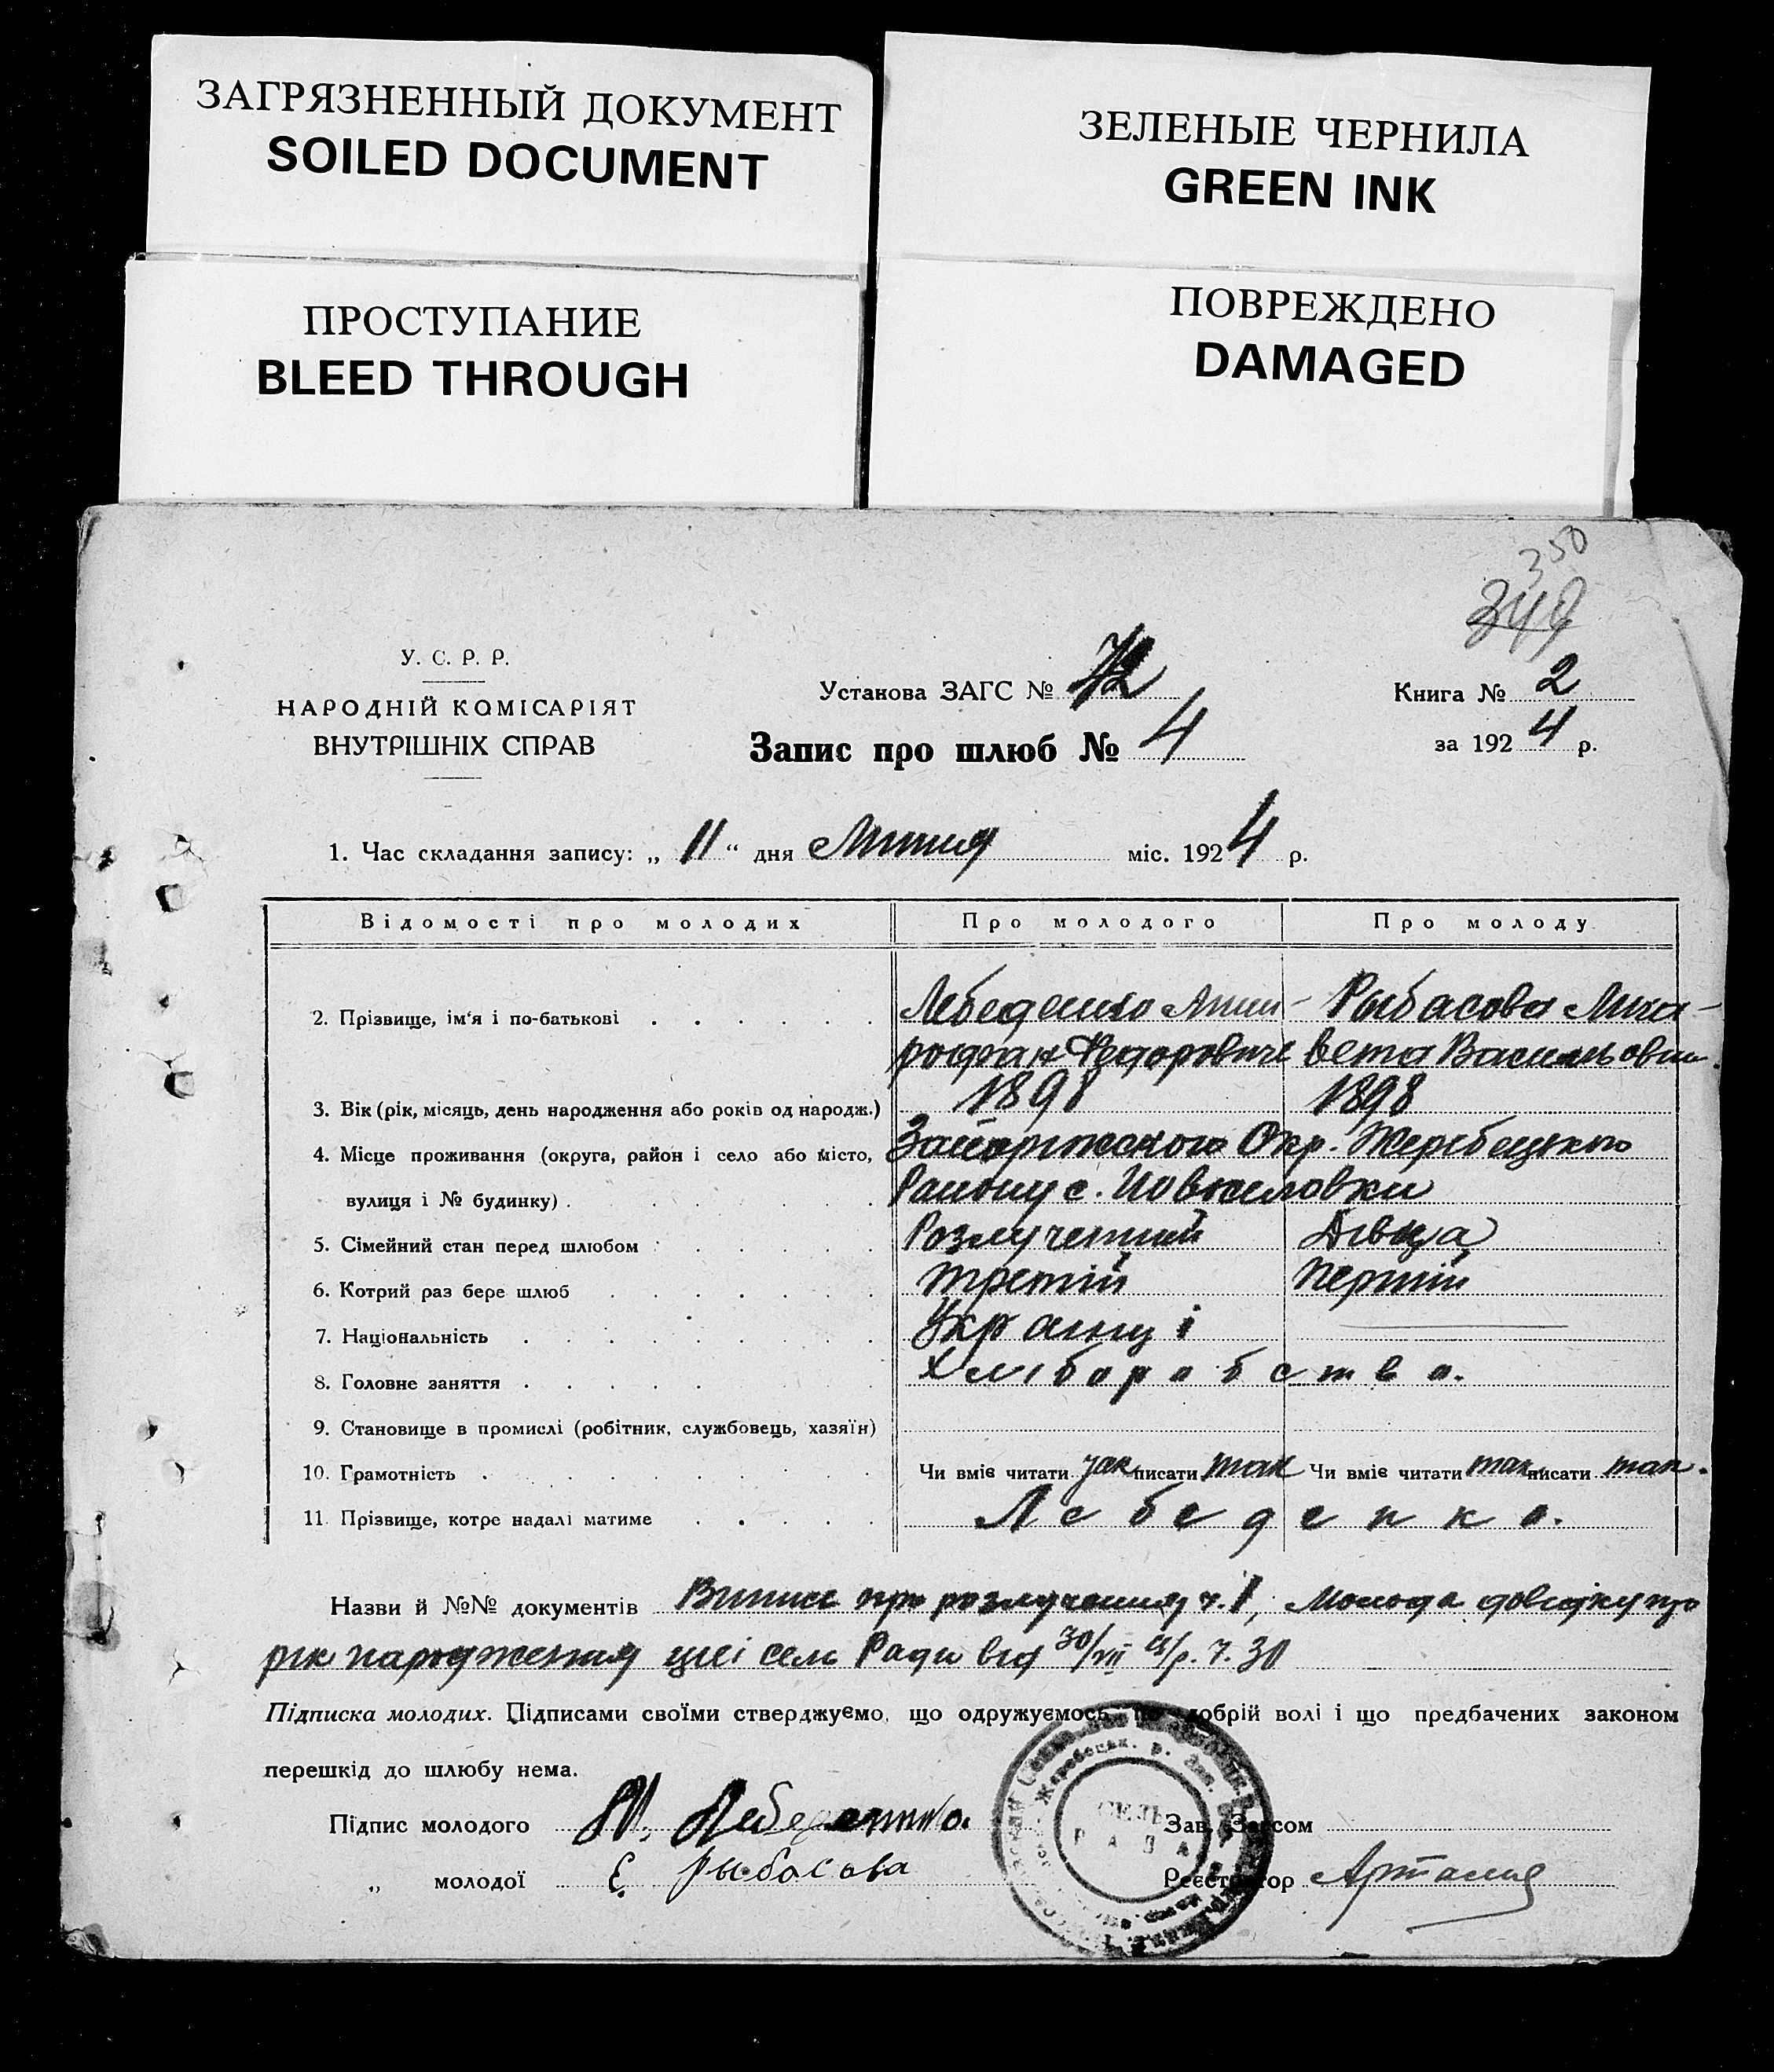 ЗАГРЯЗНЕННЫЙ ДОКУМЕНТ
SOILED DOCUMENT
ЗЕЛЕНЫЕ ЧЕРНИЛА
GREEN INK
ПРОСТУПАНИЕ
BLEED THROUGH
ПОВРЕЖДЕНО
DAMAGED
350
349
У. С. Р. Р.
НАРОДНІЙ КОМІСАРІЯТ
ВНУТРІШНІХ СПРАВ
Установа ЗАГС № 72
Книга № 2
Запис про шлюб № 4
за 1924 р.
1. Час складання запису: „ 11 “ дня Липня міс. 1924 р.
Відомості про молодих Про молодого Про молоду
2. Прізвище, ім'я і по-батькові Лебеденко Рыбасова Лиза-
Федорович вета Васильовн.
3. Вік (рік, місяць, день народження або років од народж.) 1898 1898
4. Місце проживання (округа, район і село або місто, Запоріжського Окр. Жеребецького
вулиця і № будинку) Району с. Новоселовки
5. Сімейний стан перед шлюбом Розлучений Дівца
6. Котрий раз бере шлюб третій перший
7. Національність Украинці
8. Головне заняття Хліборобство.
9. Становище в промислі (робітник, службовець, хазяїн)
10. Грамотність Чи вміє читати так писати так Чи вміє читати так писати так.
11. Прізвище, котре надалі матиме Лебеденко.
Назви й №№ документів Випись про розлучення ч. 1, Молода довідку про
рік народження цієї сель Ради від 30/VII ц/р. ч. 30
Підписка молодих. Підписами своїми стверджуємо, що одружуємось по добрій волі і що предбачених законом
перешкід до шлюбу нема.
Підпис молодого М. Лебеденко.
Зав. Загсом
„ молодої Є. Рыбасова
Реєстратор
СЕЛЬ
РАДА